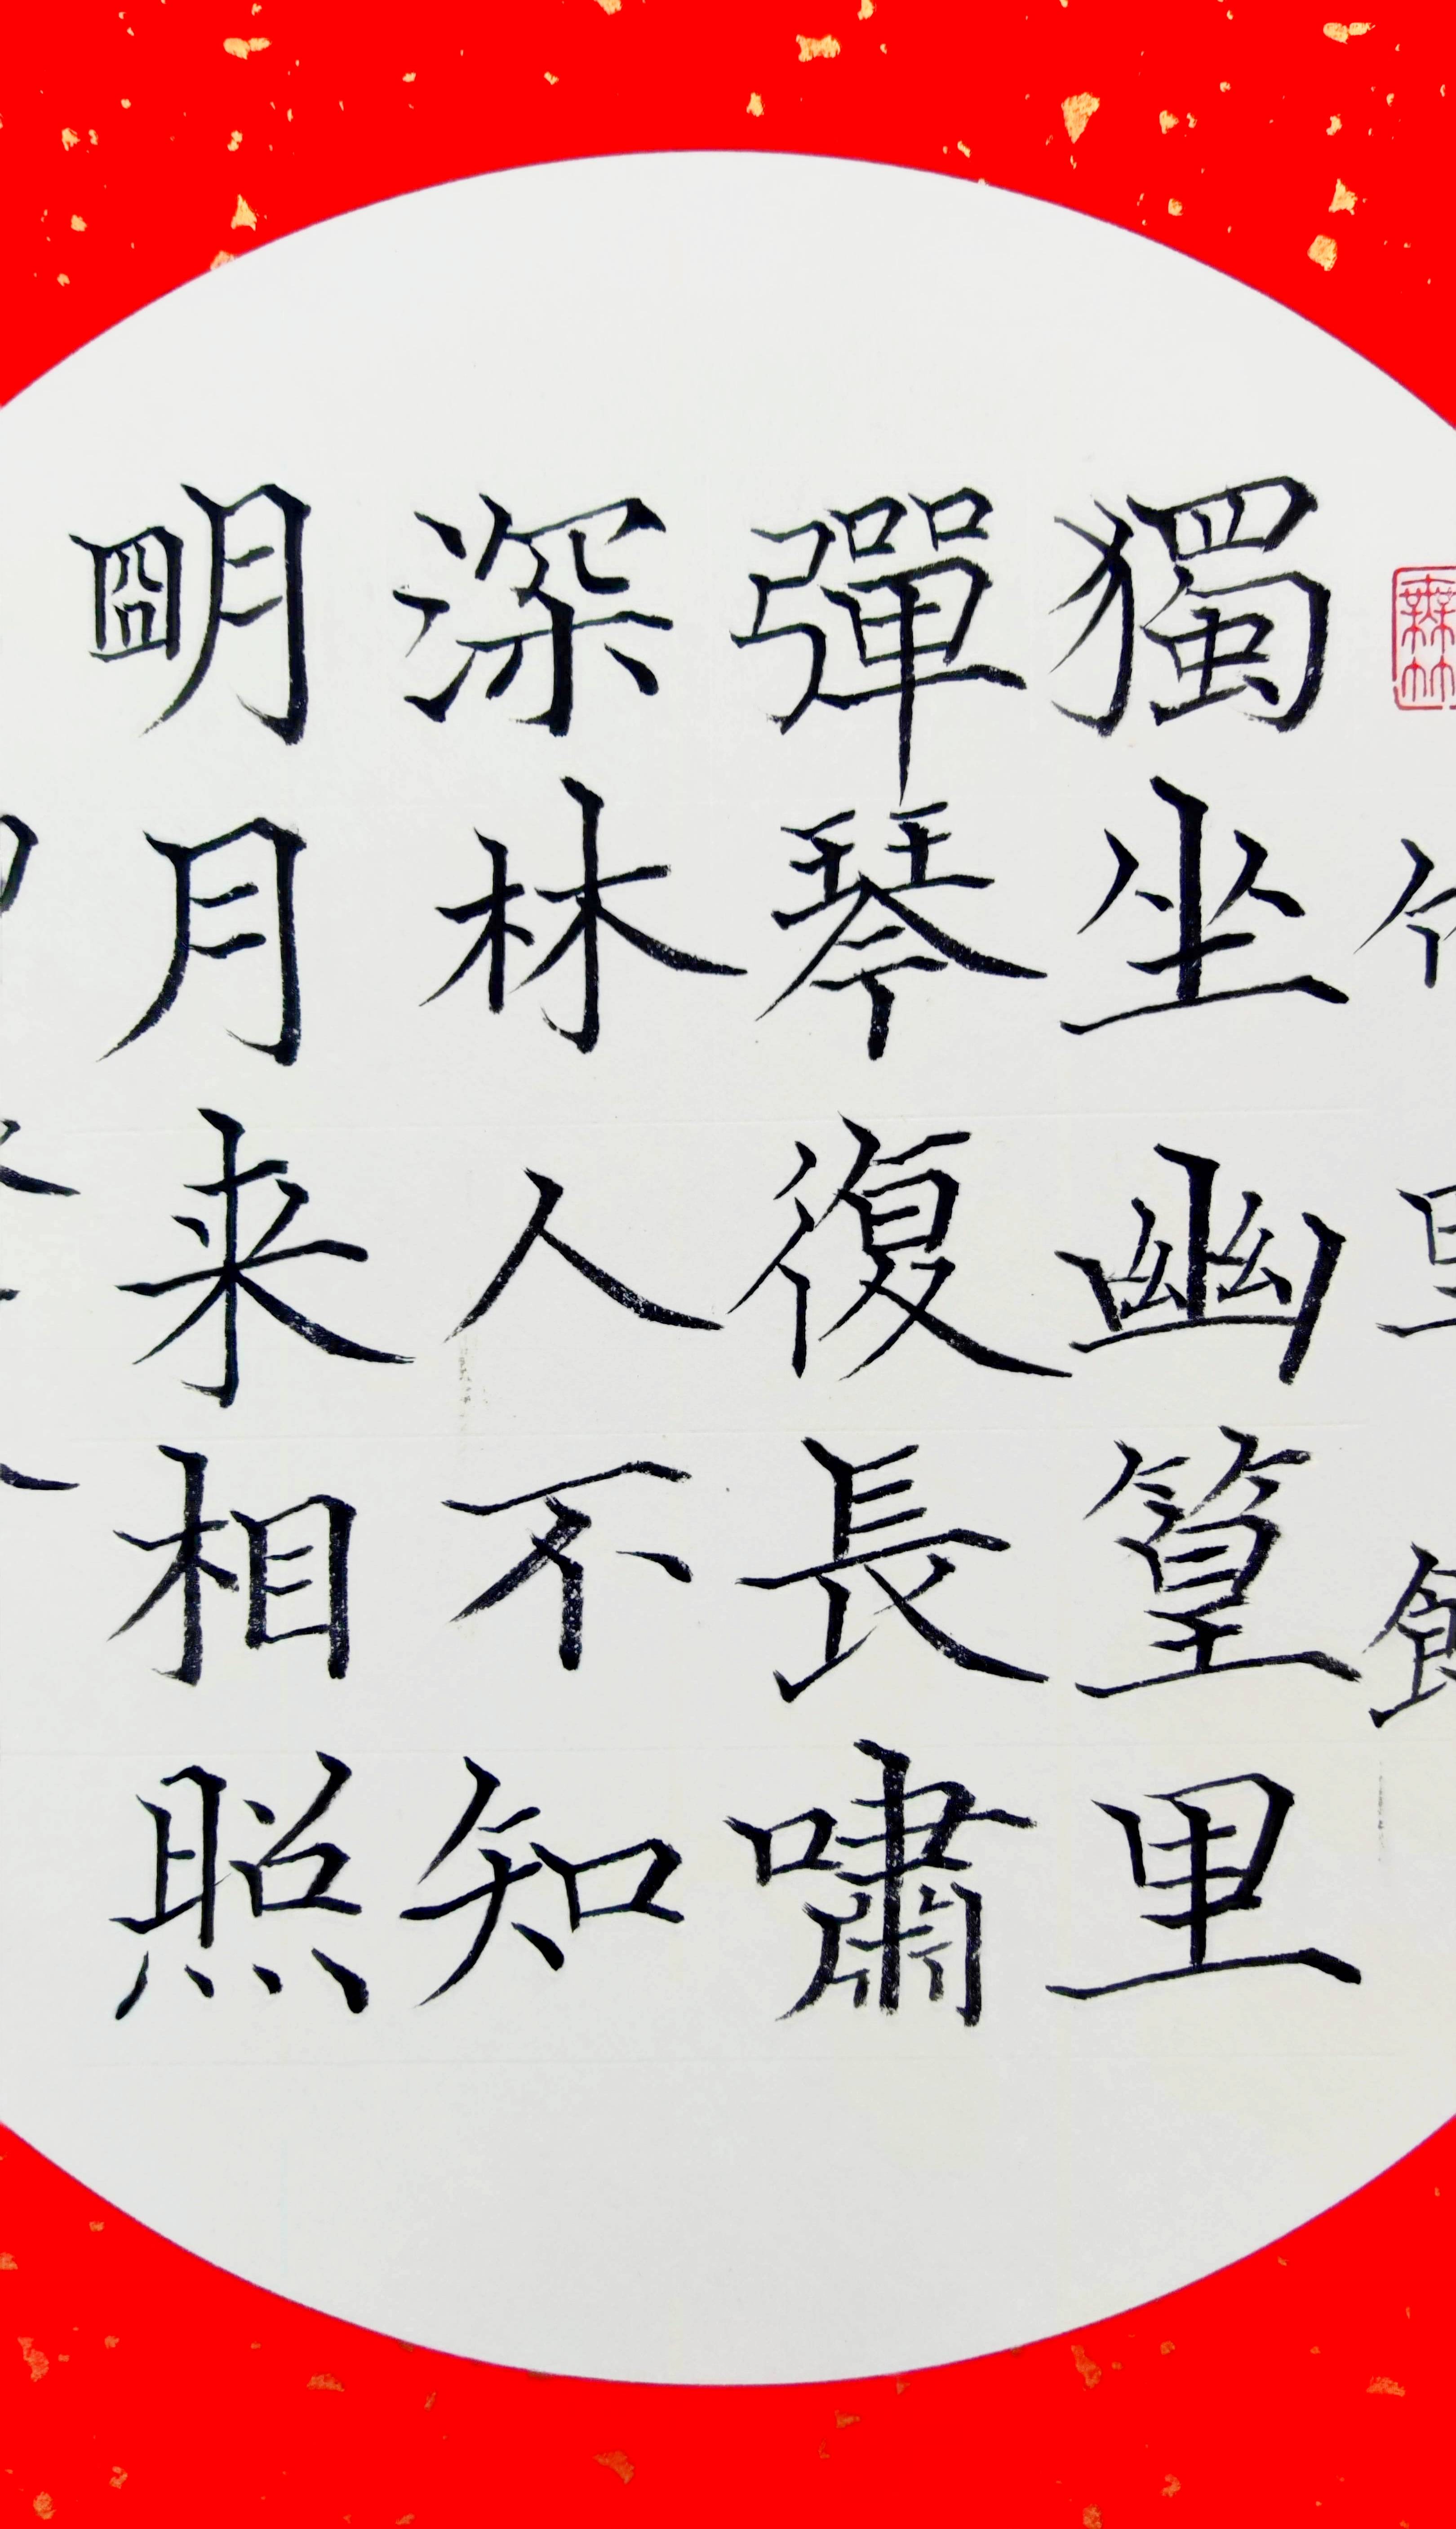 獨坐幽篁里
彈琴復長嘯
深林人不知
朙月来相照